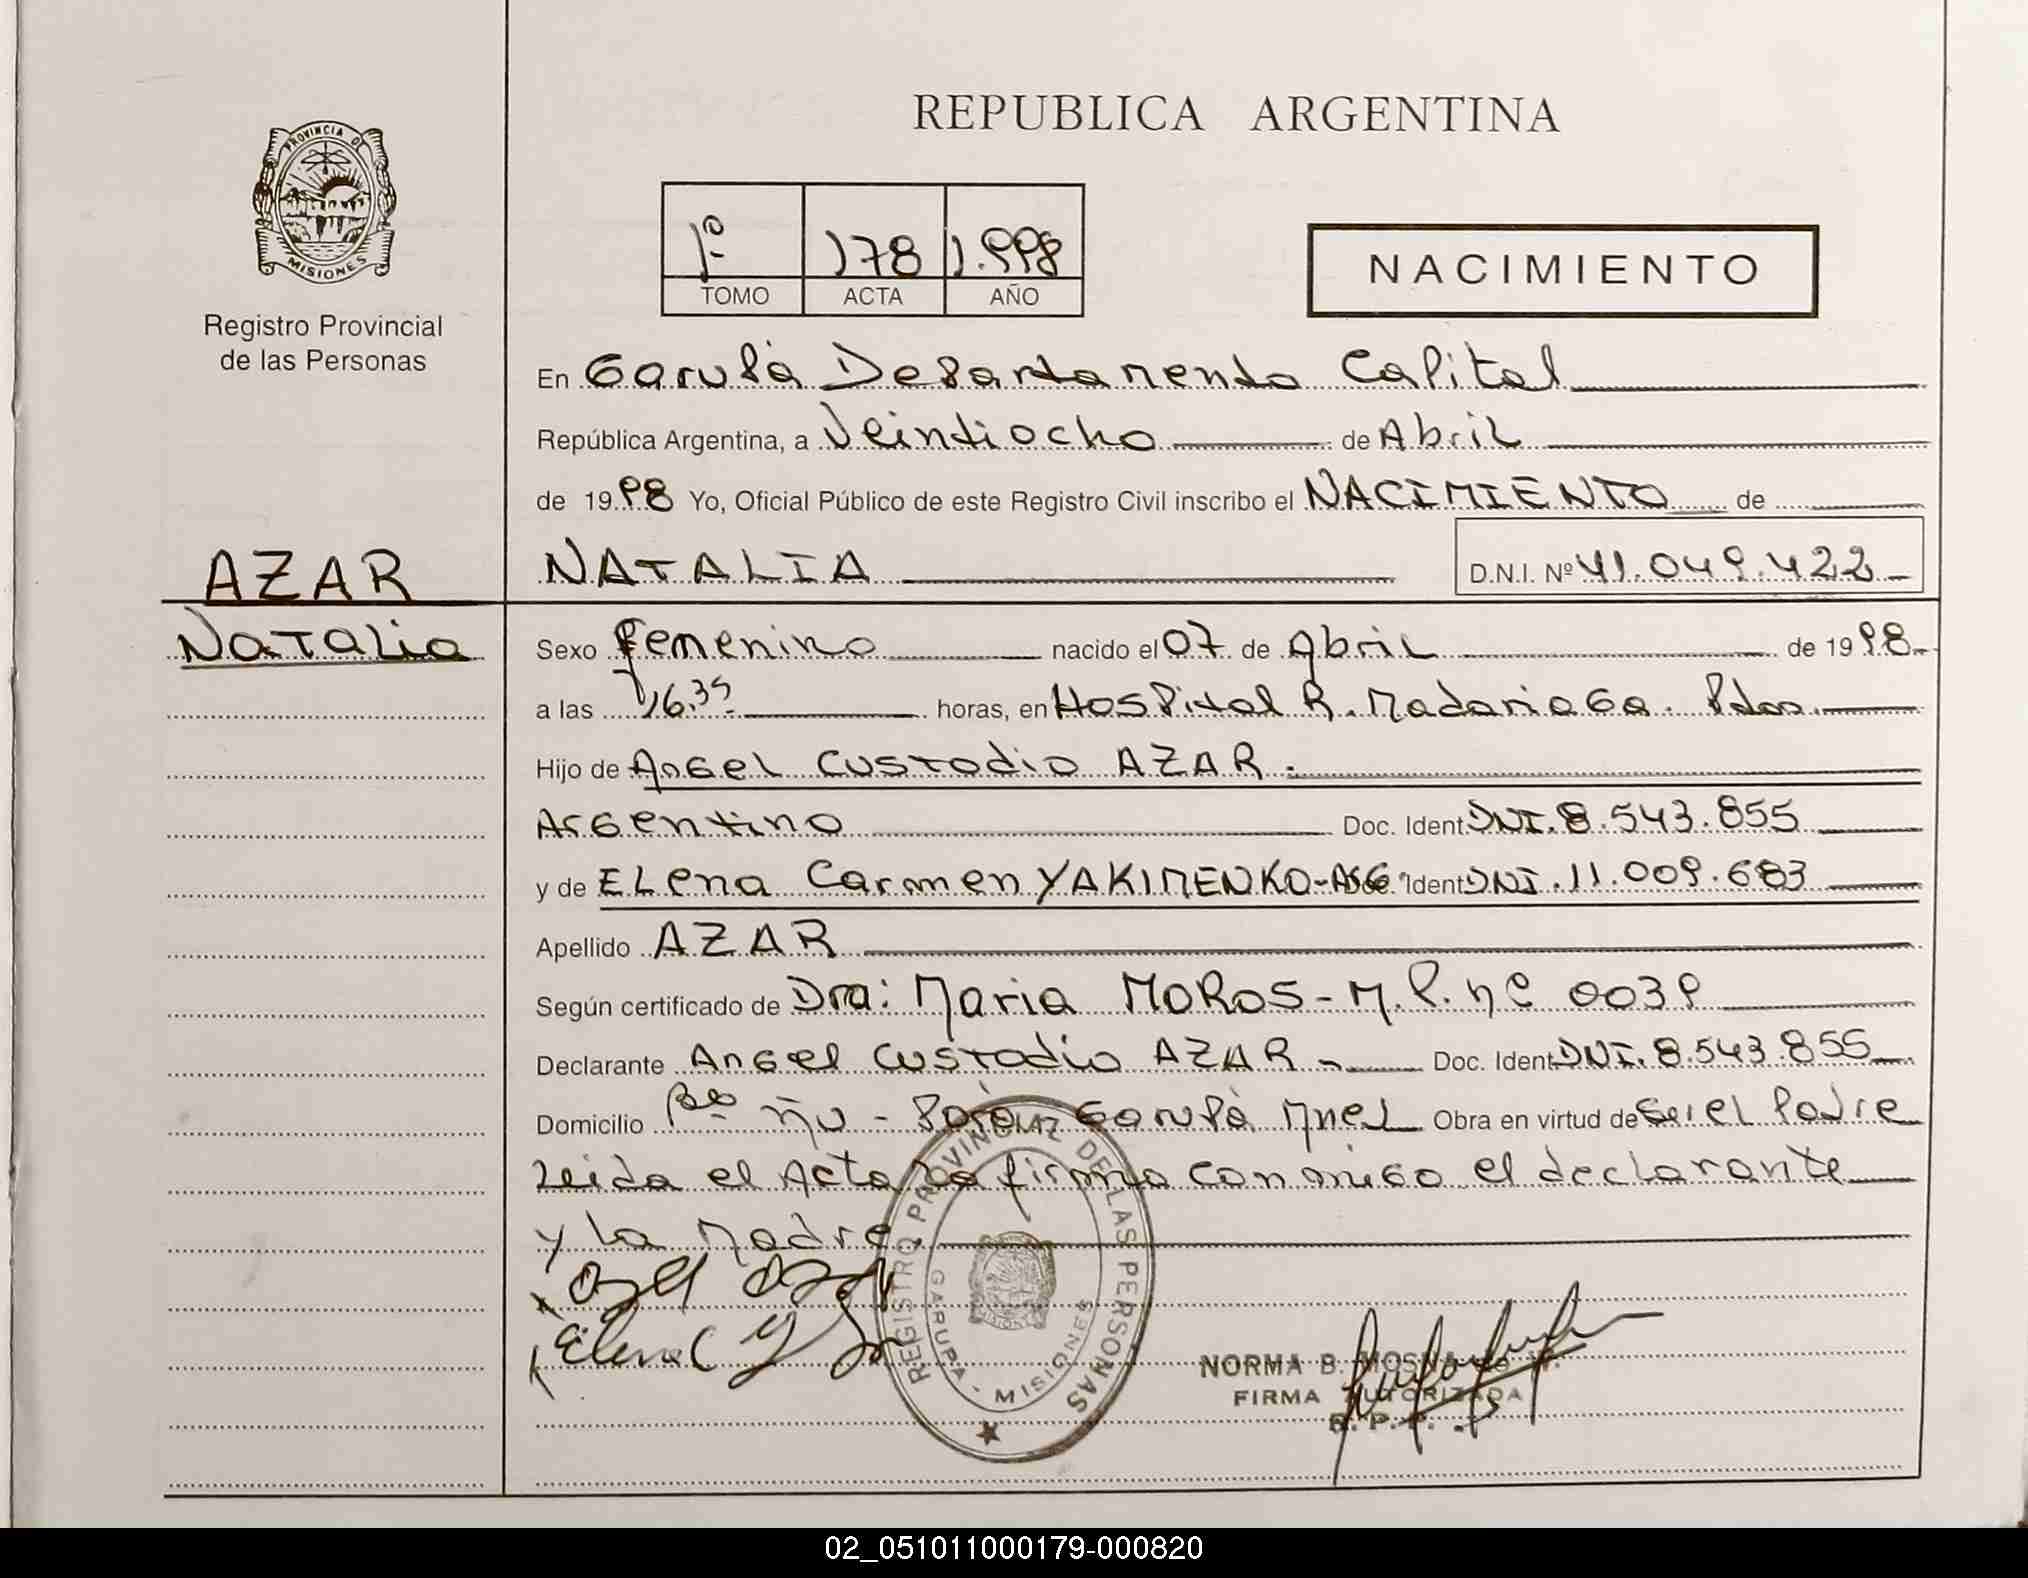 REPUBLICA ARGENTINA
PROVINCIA DE
MISIONES
Registro Provincial
de las Personas
1º 178 1.998
TOMO ACTA AÑO
NACIMIENTO
En Garupá Departamento Capital
República Argentina, a Veintiocho de Abril
de 1998 Yo, Oficial Público de este Registro Civil inscribo el NACIMIENTO de
AZAR
Natalia
NATALIA D.N.I. Nº 41.049.422
Sexo femenino nacido el 07 de Abril de 1998
a las 16.35 horas, en Hospital R. Madariaga. Pdas.
Hijo de Angel Custodio AZAR.
Argentino Doc. Ident. DNI. 8.543.855
y de Elena Carmen YAKIMENKO-Arg. Doc. Ident. DNI. 11.009.683
Apellido AZAR
Según certificado de Dra: Maria MOROS - M.P. nº 0039
Declarante Angel Custodio AZAR - Doc. Ident. DNI. 8.543.855
Domicilio Bº Ñu - Porá Garupá Mnes Obra en virtud de Ser el Padre
Leida el Acta la firma con migo el declarante
y la Madre.
REGISTRO PROVINCIAL DE LAS PERSONAS
GARUPA - MISIONES
NORMA B.
FIRMA AUTORIZADA
R. P. P.
02_051011000179-000820